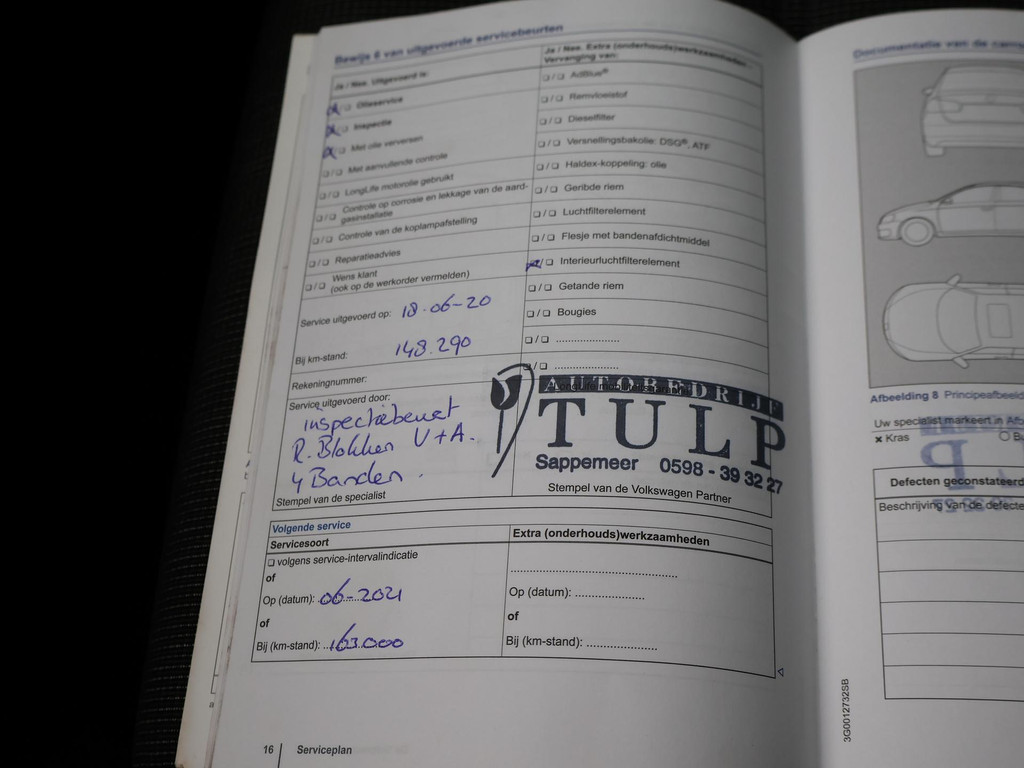 Bewijs 6 van uitgevoerde servicebeurten
Ja / Nee. Uitgevoerd is:
❑/❑ Olieservice
❑/❑ Inspectie
❑/❑ Met olie verversen
❑/❑ Met aanvullende controle
❑/❑ LongLife motorolie gebruikt
❑/❑ Controle op corrosie en lekkage van de aard-
gasinstallatie
❑/❑ Controle van de koplampafstelling
❑/❑ Reparatieadvies
❑/❑ Wens klant
(ook op de werkorder vermelden)
Service uitgevoerd op: 18-06-20
Bij km-stand: 148.290
Rekeningnummer:
Service uitgevoerd door:
inspectiebeurt
R. Blokken V+A.
4 Banden.
Stempel van de specialist
Ja / Nee. Extra (onderhouds)werkzaamheden
Vervanging van:
❑/❑ AdBlue®
❑/❑ Remvloeistof
❑/❑ Dieselfilter
❑/❑ Versnellingsbakolie: DSG®, ATF
❑/❑ Haldex-koppeling: olie
❑/❑ Geribde riem
❑/❑ Luchtfilterelement
❑/❑ Flesje met bandenafdichtmiddel
❑/❑ Interieurluchtfilterelement
❑/❑ Getande riem
❑/❑ Bougies
❑/❑ .....................
❑/❑ .....................
AUTOBEDRIJF
TULP
Sappemeer 0598 - 39 32 27
Stempel van de Volkswagen Partner
Volgende service
Servicesoort
❑ volgens service-intervalindicatie
of
Op (datum): 06-2021
of
Bij (km-stand): 163.000
Extra (onderhouds)werkzaamheden
Op (datum): .....................
of
Bij (km-stand): .....................
16 Serviceplan
Documentatie van de
Afbeelding 8 Principeafbeeld
Uw specialist markeert in Afb
× Kras
Defecten geconstateerd
Beschrijving van de defecte
3G0012732SB